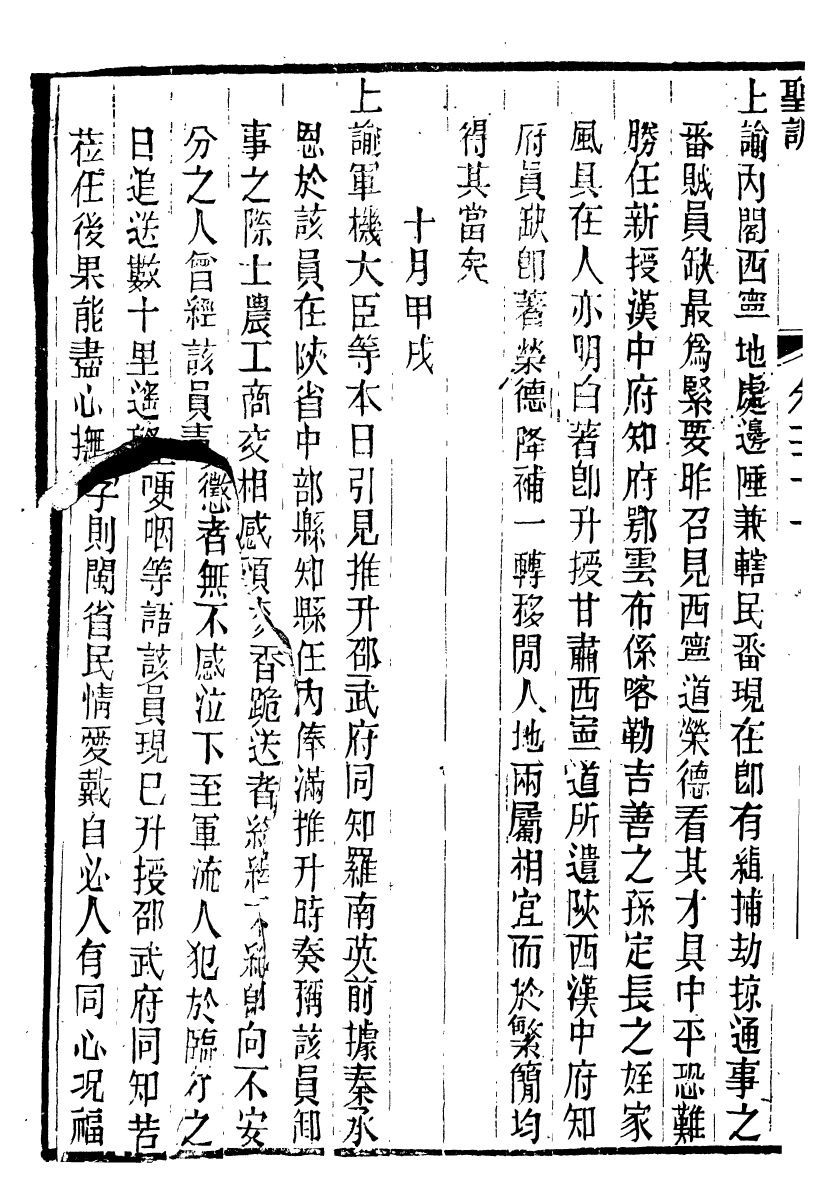 聖訓
卷二十一
上諭內閣西寧地處邊陲兼轄民番現在卽有緝捕劫掠通事之
番賊員缺最爲緊要昨召見西寧道榮德看其才具中平恐難
勝任新授漢中府知府鄂雲布係喀勒吉善之孫定長之姪家
風具在人亦明白著卽升授甘肅西寧道所遺陝西漢中府知
府員缺卽著榮德降補一轉移閒人地兩屬相宜而於繁簡均
得其當矣
十月甲戌
上諭軍機大臣等本日引見推升邵武府同知羅南英前據秦承
恩於該員在陝省中部縣知縣任內俸滿推升時奏稱該員卸
事之際士農工商交相感頌 香跪送者 向不安
分之人曾經該員責懲者無不感泣下至軍流人犯於臨行之
日追送數十里遙望哽咽等語該員現已升授邵武府同知若
莅任後果能盡心撫字則閩省民情愛戴自必人有同心况福